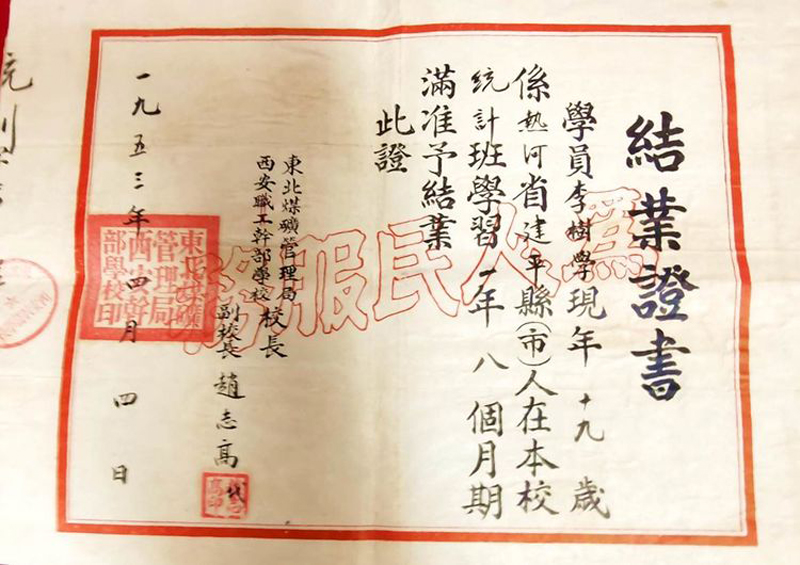 結業證書
學員李樹學現年十九歲
係熱河省建平縣(市)人在本校
統計班學習一年八個月期
滿准予結業
此證
東北煤礦管理局
西安職工幹部學校
校長
副校長趙志高
一九五三年四月四日
為人民服務
東北煤礦
管理局
西安幹
部學校印